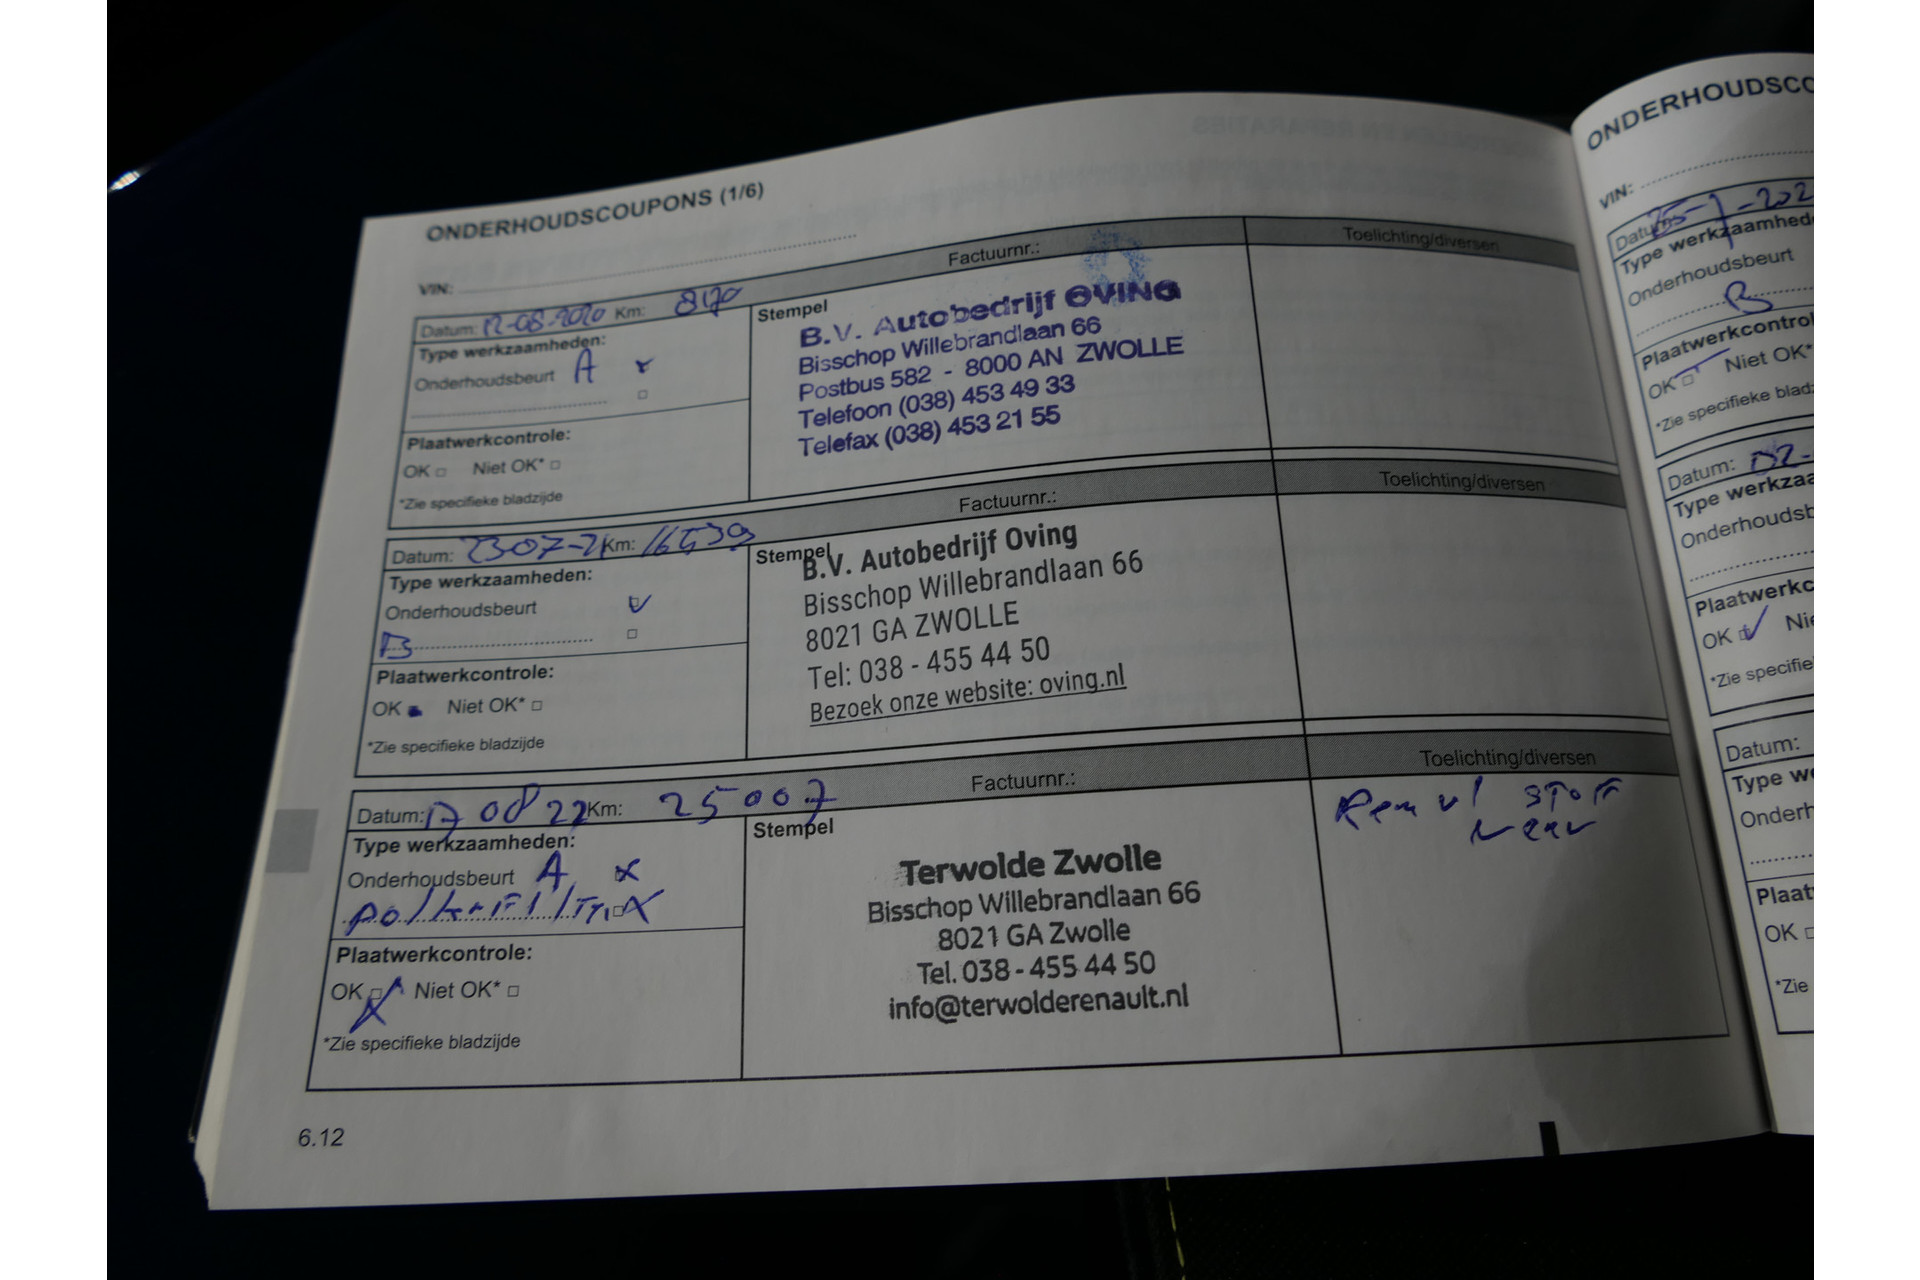 ONDERHOUDSCOUPONS (1/6)
VIN:
Factuurnr.:
Toelichting/diversen
Datum: 12-08-2020 Km: 8170
Stempel
Type werkzaamheden:
Onderhoudsbeurt A
Plaatwerkcontrole:
OK Niet OK*
*Zie specifieke bladzijde
B.V. Autobedrijf OVING
Bisschop Willebrandlaan 66
Postbus 582 - 8000 AN ZWOLLE
Telefoon (038) 453 49 33
Telefax (038) 453 21 55
Factuurnr.:
Toelichting/diversen
Datum: 23-07-21 Km: 16539
Stempel
Type werkzaamheden:
Onderhoudsbeurt
B
Plaatwerkcontrole:
OK Niet OK*
*Zie specifieke bladzijde
B.V. Autobedrijf Oving
Bisschop Willebrandlaan 66
8021 GA ZWOLLE
Tel: 038 - 455 44 50
Bezoek onze website: oving.nl
Factuurnr.:
Toelichting/diversen
Datum: 17 08 22 Km: 25007
Stempel
Type werkzaamheden:
Onderhoudsbeurt A
Plaatwerkcontrole:
OK Niet OK*
*Zie specifieke bladzijde
Terwolde Zwolle
Bisschop Willebrandlaan 66
8021 GA Zwolle
Tel. 038 - 455 44 50
info@terwolderenault.nl
6.12
ONDERHOUDSCO
VIN:
Datum:
Type werkzaamhed
Onderhoudsbeurt
B
Plaatwerkcontrol
OK Niet OK*
*Zie specifieke bladz
Datum: 02-
Type werkzaa
Onderhoudsb
Plaatwerkc
OK Nie
*Zie specifie
Datum:
Type we
Onderh
Plaat
OK
*Zie